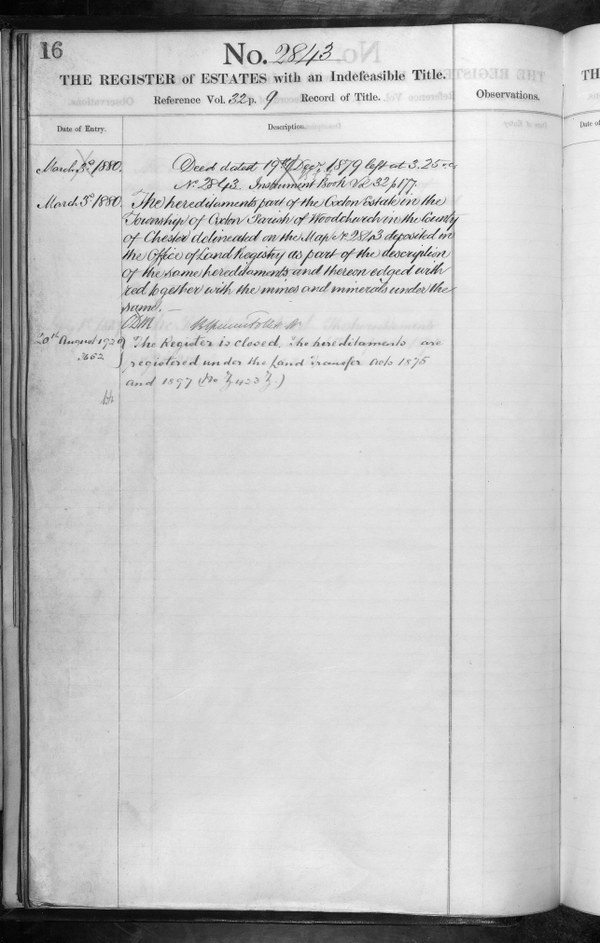 16
No. 2843
THE REGISTER of ESTATES with an Indefeasible Title.
Reference Vol. 32 p. 9 Record of Title.
Observations.
Date of Entry.
Description.
March 3d 1880.
Deed dated 19th Decr. 1879 left at 3.25
No 2843 Instrument Book Vol 32 p 177.
March 3d 1880.
The hereditaments part of the Oxton Estate in the
Township of Oxton Parish of Woodchurch in the County
of Chester delineated on the Map No 2843 deposited in
the Office of Land Registry as part of the description
of the same hereditaments and thereon edged with
red together with the mines and minerals under the
same.
20th August 1920
The Register is closed. The hereditaments are
registered under the Land Transfer Acts 1875
and 1897 (No
TH
Date of